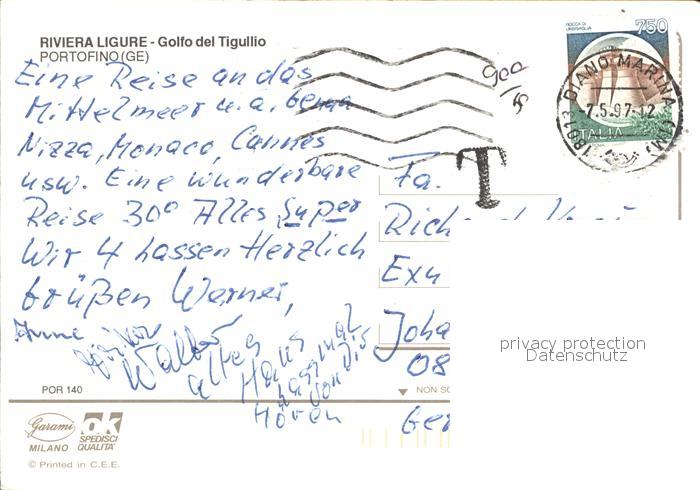 RIVIERA LIGURE - Golfo del Tigullio
PORTOFINO (GE)
Eine Reise an das
Mittelmeer u.a. Genua
Nizza, Monaco, Cannes
usw. Eine wunderbare
Reise 30° Alles Super
Wir 4 lassen Herzlich
Grüßen Werner,
Anne
Walter
altes
Haus
lass mal
von Dir
Hören
POR 140
Garami
MILANO
ok
SPEDISCI
QUALITA'
© Printed in C.E.E.
ROCCA DI
URBISAGLIA
750
ITALIA
18013 DIANO MARINA (IM)
7.5.97-12
900
T
Fa.
Rich
Exn
Joha
08
Ger
NON SC
privacy protection
Datenschutz